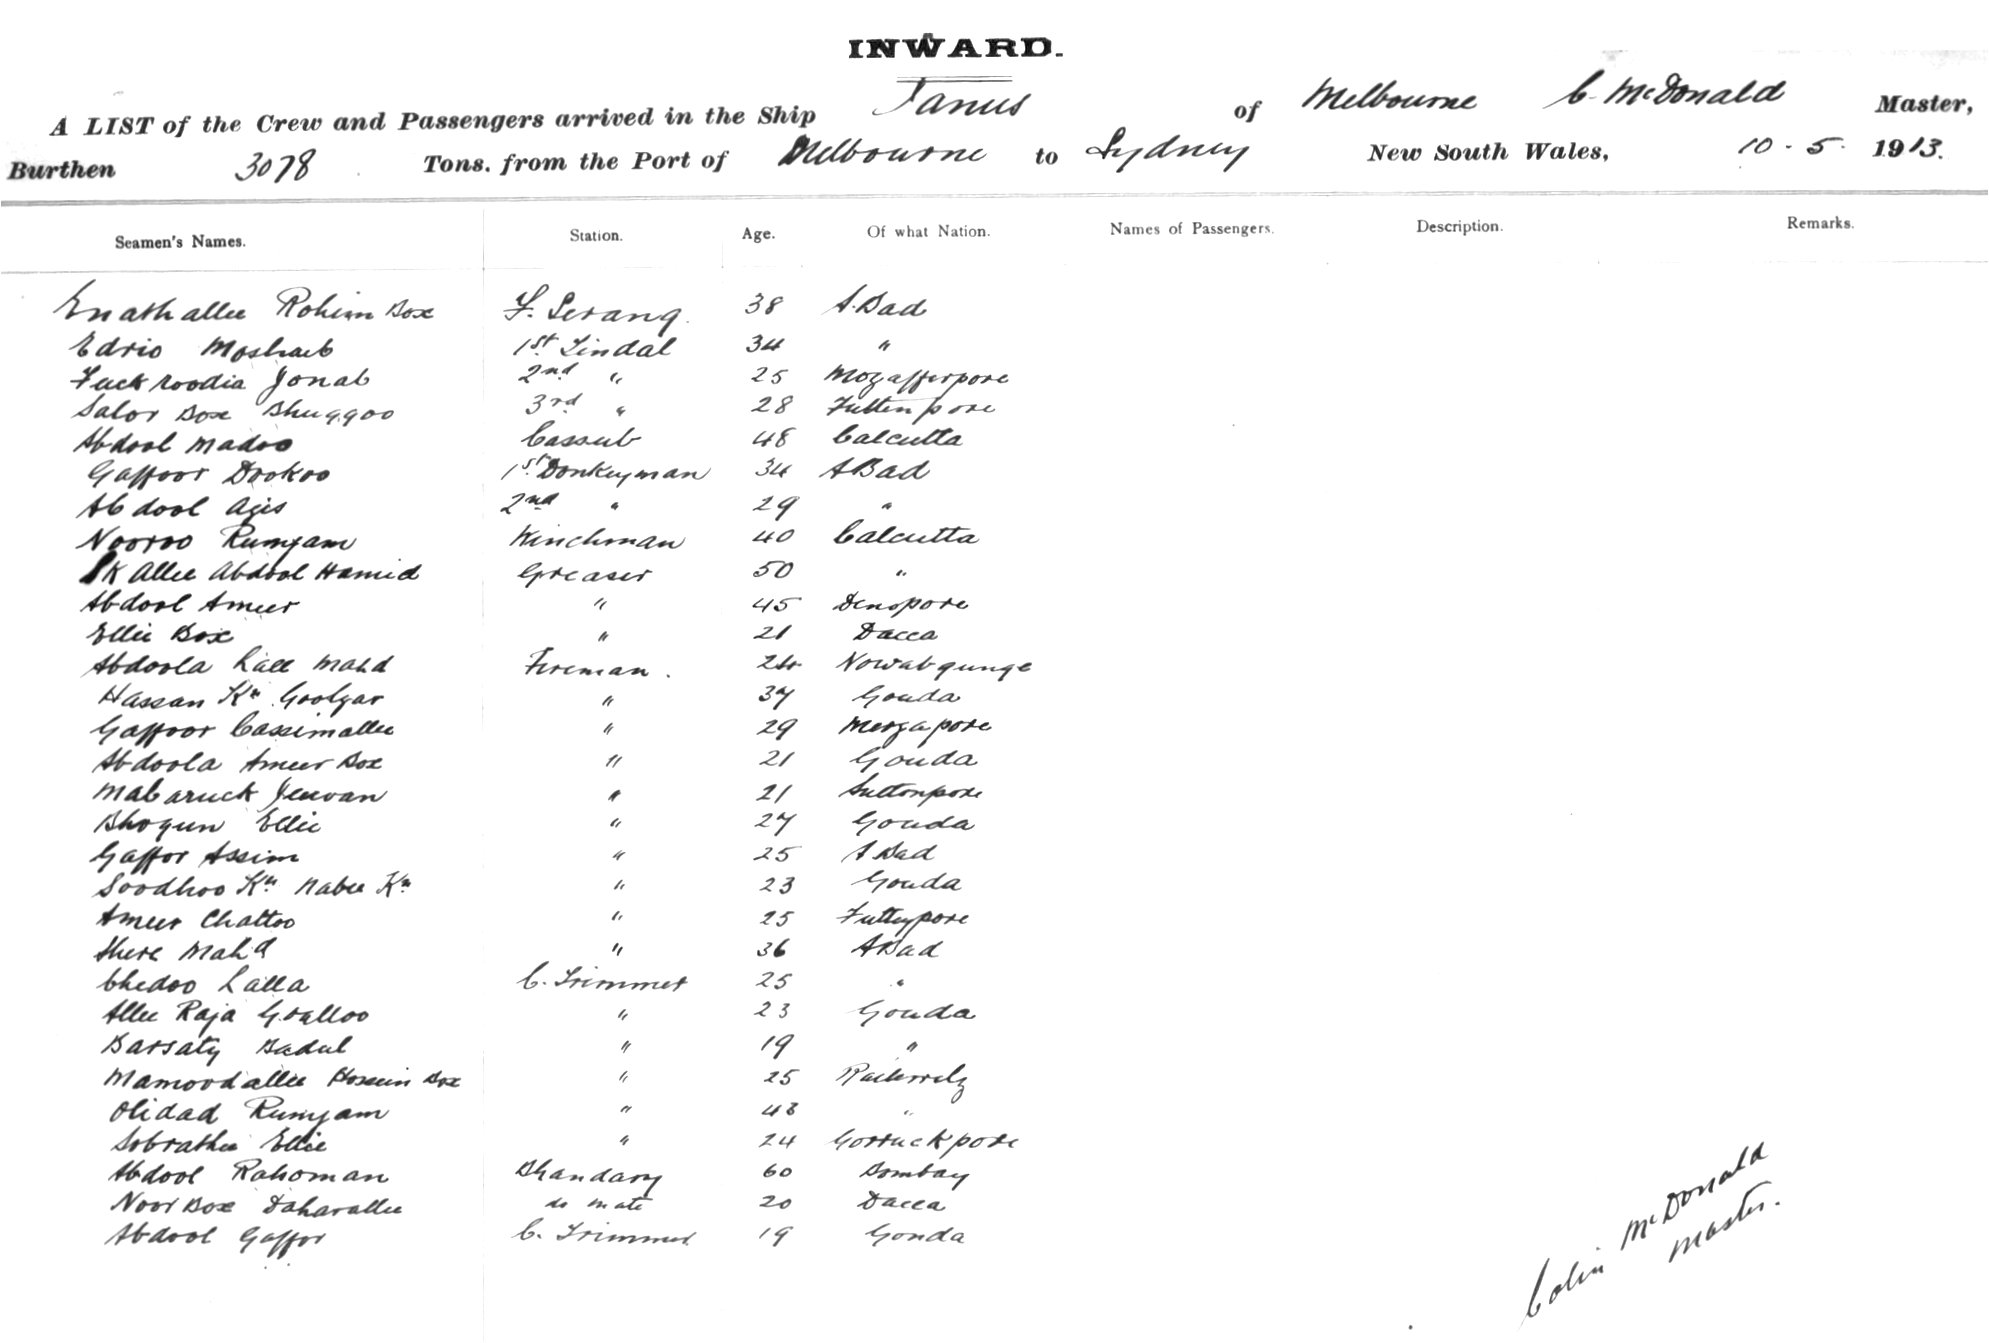 INWARD.
A LIST of the Crew and Passengers arrived in the Ship Janus of Melbourne C. McDonald Master,
Burthen 3078 Tons. from the Port of Melbourne to Sydney New South Wales, 10 - 5 - 1913.
Seamen's Names. Station. Age. Of what Nation. Names of Passengers. Description. Remarks.
Enathallee Rohim Box F. Serang. 38 A. Bad
Edrio Moshaeb 1st Tindal 34 "
Fuckroodia Jonab 2nd " 25 Mozafferpore
Salor Box Bhuggoo 3rd " 28 Futtenpore
Abdool Madoo Cassub 48 Calcutta
Gaffoor Dookoo 1st Donkeyman 34 A Bad
Abdool Agis 2nd " 29 "
Nooroo Rumjam Winchman 40 Calcutta
SK Allee Abdool Hamid Greaser 50 "
Abdool Ameer " 45 Denopore
Ellie Box " 21 Dacca
Abdoola Lall Mahd Fireman. 24 Nowabgunge
Hassan Kn Goolzar " 37 Gouda
Gaffoor Cassimallee " 29 Merzapore
Abdoola Ameer Box " 21 Gouda
Mabaruck Jeewan " 21 Suttonpore
Bhogun Ellie " 27 Gouda
Gaffor Assim " 25 A Bad
Soodhoo Kn Nabee Kn " 23 Gouda
Ameer Chattoo " 25 Futteypore
Shere Mahd " 36 A Bad
Chedoo Lalla C. Trimmer 25 "
Allee Raja Goalloo " 23 Gouda
Barsaty Badul " 19 "
Mamoodallee Hossein Box " 25
Olidad Rumjam " 43 "
Sobrathee Ellie " 24 Gorruckpore
Abdool Rahoman Bhandary 60 Bombay
Noor Box Daharallee do mate 20 Dacca
Abdool Gaffor C. Trimmer 19 Gonda
Colin McDonald
Master.